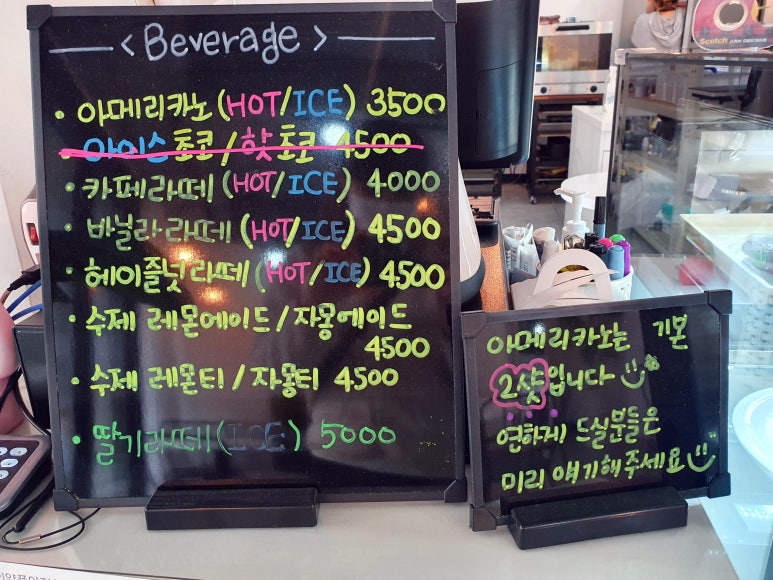 < Beverage >
• 아메리카노 (HOT/ICE) 3500
• 아이스 초코 / 핫 초코 4500
• 카페라떼 (HOT/ICE) 4000
• 바닐라라떼 (HOT/ICE) 4500
• 헤이즐넛 라떼 (HOT/ICE) 4500
• 수제 레몬에이드 / 자몽에이드
4500
• 수제 레몬티 / 자몽티 4500
• 딸기라떼 (ICE) 5000
아메리카노는 기본
2샷입니다
연하게 드실분들은
미리 얘기해주세요
Scotch